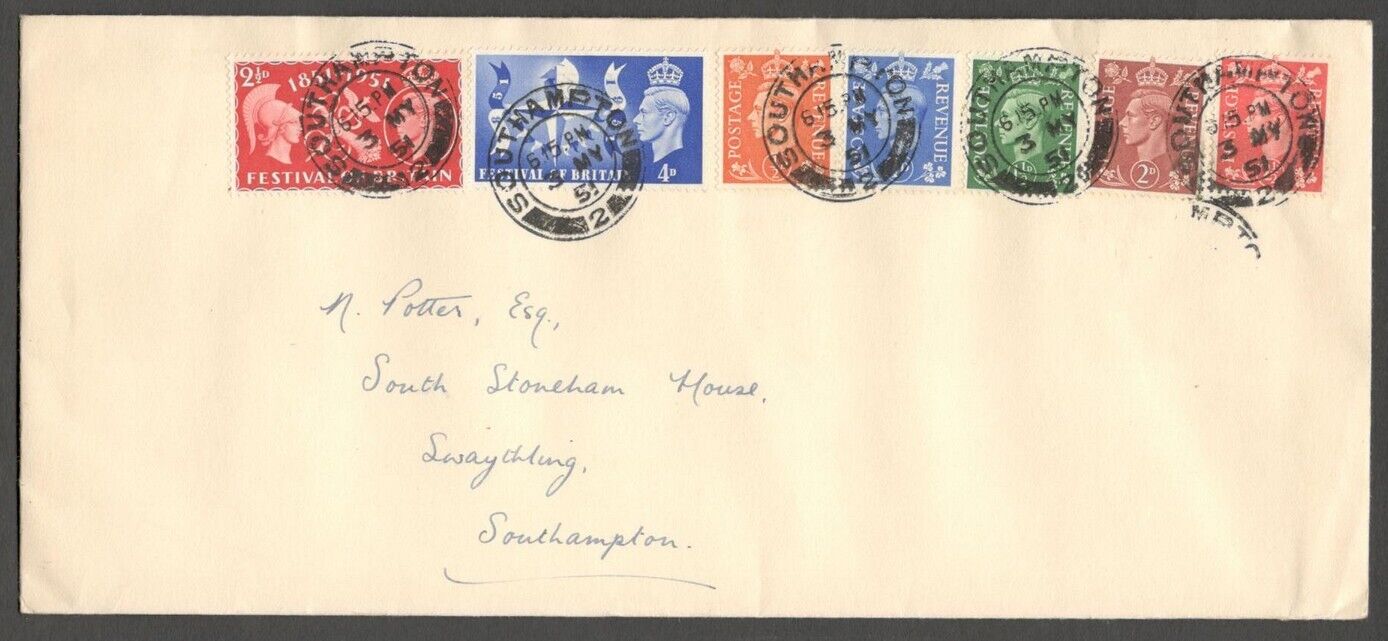 2½D 1851-1951
FESTIVAL OF BRITAIN
1851 1951
FESTIVAL OF BRITAIN 4D
POSTAGE REVENUE
POSTAGE REVENUE
POSTAGE REVENUE
POSTAGE REVENUE 2D
POSTAGE REVENUE
SOUTHAMPTON 2
6 15 PM
3 MY
51
SOUTHAMPTON 2
6 15 PM
3 MY
51
SOUTHAMPTON 2
6 15 PM
3 MY
51
SOUTHAMPTON 2
6 15 PM
3 MY
51
SOUTHAMPTON 2
6 15 PM
3 MY
51
MPTO
N. Potter, Esq.,
South Stoneham House,
Swaythling,
Southampton.